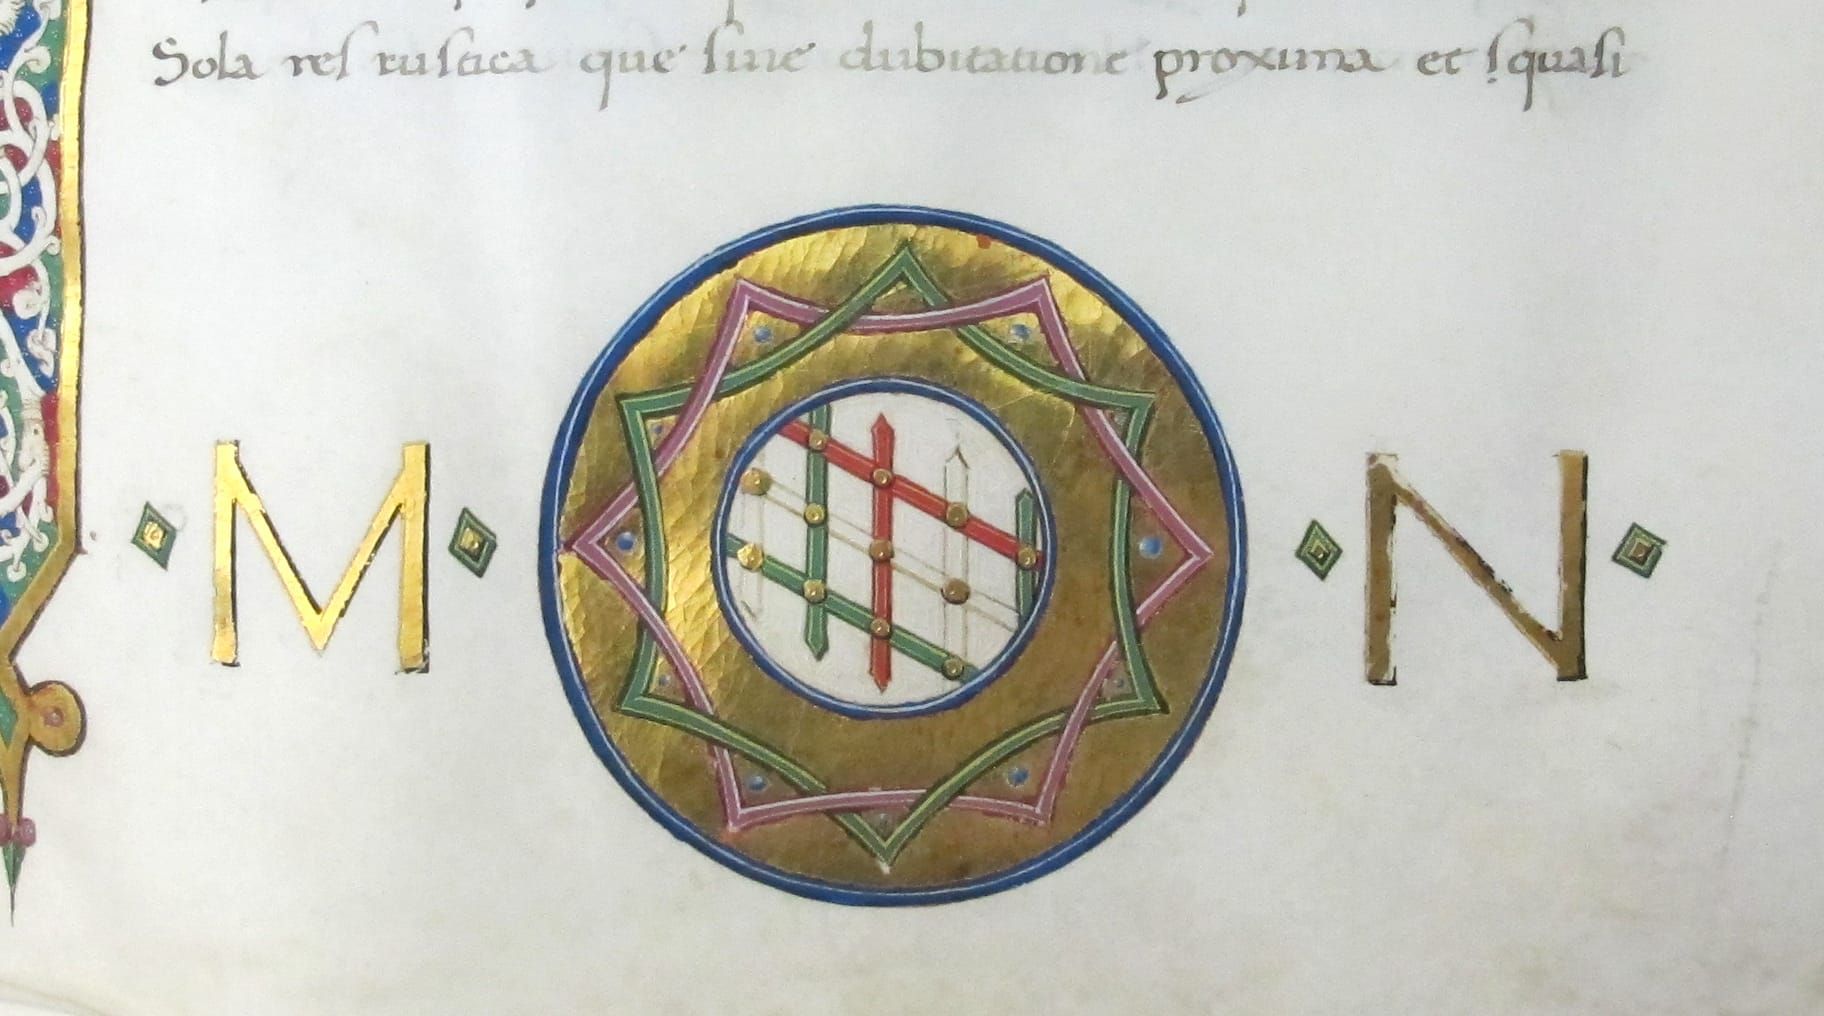 Sola res rustica que sine dubitatione proxima et quasi
M N